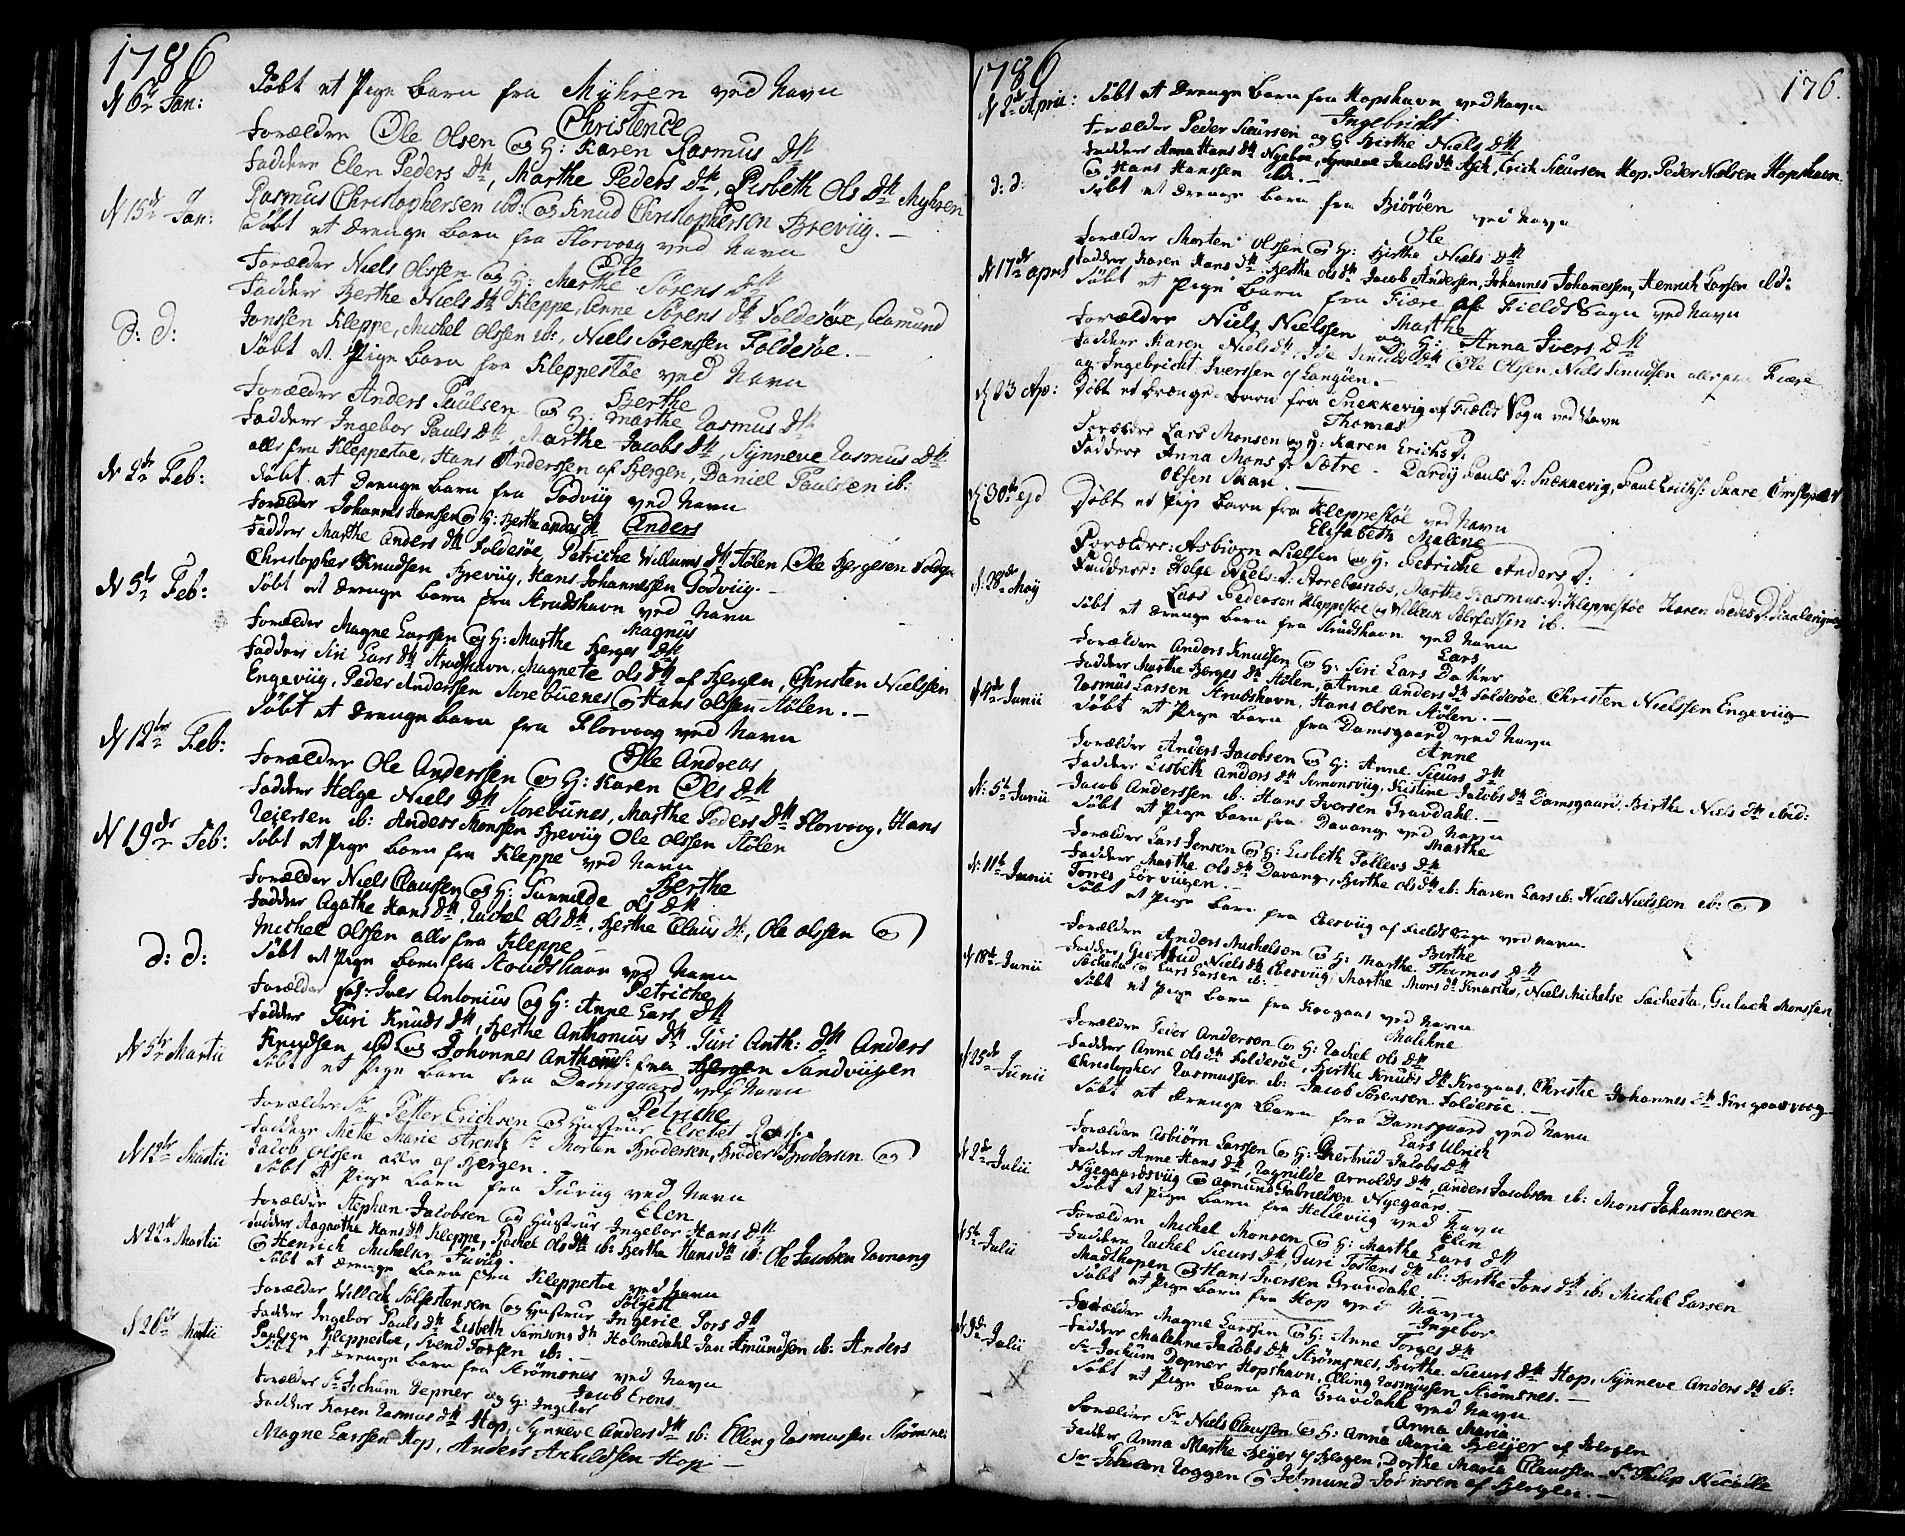 1786
d 6te Jan: Døbt et Pige barn fra Myhren ved Navn
Christence
Forældre Ole Olsen og H: Karen Rasmus Dtt
Faddere Elen Peders Dtt, Marthe Peders Dtt, Lisbeth Ols Dtt Myhren
Rasmus Christophersen ibd: og Knud Christophersen Breviig. –
d 15de Jan: Døbt et Drenge barn fra Florvog ved Navn
Ole
Forælder Niels Olssen og H: Marthe Sørens Dtt
Fadder Berthe Niels Dtt Kleppe, Anne Sørens Dtt Folderøe, Aamund
Jonssen Kleppe, Michel Olssen ib:, Niels Sørenssen Folderøe.
D: D: Døbt et Pige barn fra Kleppestøe ved Navn
Berthe
Forælder Anders Paulsen og H: Marthe Rasmus Dtt
Faddere Ingebor Pauls Dtt, Marthe Jacobs Dtt, Synneve Rasmus Dtt
alle fra Kleppestøe, Hans Anderssen af Bergen, Daniel Paulsen ib:
d 2de Feb: Døbt et Drenge barn fra Godviig ved Navn
Anders
Forælder Johannes Hanssen og H: Berthe Anders Dtt
Fadders Marthe Anders Dtt Folderøe, Petriche Willums Dtt Stølen, Ole Bergesen
Christopher Knudsen Breviig, Hans Johannessen Godviig. –
d 5te Feb: Døbt et Drenge barn fra Strudshavn ved Navn
Magnus
Forælder Magne Larssen og H: Marthe Berges Dtt
Fadders Siri Lars Dtt Strudshavn, Magnete Ols Dtt af Bergen, Christen Nielssen
Engeviig, Peder Anderssen Storebuenes og Hans Olssen Stølen. –
d 12te Feb: Døbt et Drenge barn fra Florvog ved Navn
Ole Andreas
Forælder Ole Anderssen og H: Karen Ols Dtt
Fadder Helge Niels Dtt Storebunes, Marthe Peders Dtt Florvog, Hans
Reiersen ib: Anders Monssen Breviig Ole Olssen Stølen
d 19de Feb: Døbt et Pige barn fra Kleppe ved Navn
Berthe
Forælder Niels Claussen og H: Gunnilde Ols Dtt
Fadder Agathe Hans Dtt, Rachel Ols Dtt, Berthe Claus Dtt, Ole Olssen og
Michel Olssen alle fra Kleppe
D: D: Døbt et Pige barn fra Strudshavn ved Navn
Petriche
Forælder Iver Antonius og H: Anne Lars Dtt
Fadder Guri Knuds Dtt, Berthe Anthonius Dtt Guri Anth: Dtt Anders
Knudsen ibd og Johannes Anthonius: fra Bergen Sandviigen
d 5te Martii Døbt et Pige barn fra Damsgaard ved Navn
Petriche
Forælder Sr Petter Erichsen og Hustrue Elsebet
Fadders Mette Marie Arentz, Sr Morten Brodersen, Broder Brodersen og
Jacob Olssen alle af Bergen.
d 12te Martii Døbt et Pige barn fra Juviig ved Navn
Elen
Forælder Stephan Jacobsen og Hustrue Ingebor Hans Dtt
Fadder Aagaathe Hans Dtt Kleppe, Rachel Ols Dtt ib: Berthe Hans Dtt ib: Ole Jacobsen Ravnang
og Henrich Michelsen Juviig.
d 22de Martii Døbt et Drenge barn fra Kleppestøe ved Navn
Sølfest
Forælder Willach Sølfestensen og Hustrue Ingerie Tors Dtt
Fadder Ingebor Pauls Dtt Lisbeth Samsons Dtt Holmedahl Jan Amundsen ib: Anders
Paulsen Kleppestøe, Svend Torsen ib:
d 26de Martii Døbt et Drenge barn fra Strømsnes ved Navn
Jacob Erens
Forælder Sr Jochum Depner og H: Ingebor
Fadders Karen Rasmus Dtt Hop, Synneve Anders Dtt ib: Elling Rasmussen Strømsnes
Magne Larssen Hop, Anders Askildssen Hop –
1786
176.
d 2de April: Døbt et Drenge barn fra Hopshavn ved Navn
Ingebricht
Forælder Peder Siursen og H: Birthe Niels Dtt
Fadders Anna Hans Dtt Nyebøe, Synneve Jacobs Dtt Ask, Erich Siursen Hop, Peder Nielsen Hopshavn
og Hans Hanssen ibd. –
D: D: Døbt et Drenge barn fra Biorøen ved Navn
Ole
Forælder Morten Olssen og H: Birthe Niels Dtt
Fadder Karen Hans Dtt, Berthe Ols Dtt Jacob Andersen, Johannes Johannessen, Henrich Larsen ibd:
d 17de April Døbt et Pige barn fra Fiære af Fields Sogn ved Navn
Marthe
Forælder Niels Nielssen og H: Anna Ivers Dtt
Fadders Karen Niels Dtt, Ida Knuds Dtt Ole Olssen, Niels Knudssen alle fra Fiære
og Ingebricht Iverssen af Langøen. –
d 23 Ap: Døbt et Drænge barn fra Snekkevig af Fields Sogn ved Navn
Thomas
Forælder Lars Monsen og H: Karen Erichs D.
Faddere Anna Mons Dr Sætre. Dordij Pauls D: Snekkevig, Paul Erichs: Skare,
Olsen Skar. –
d 30te ejd Døbt et Pige barn fra Kleppestøe ved Navn
Elisabeth Malene
Forælder: Asbiørn Nielsen og H: Petriche Anders D:
Fadderer: Helge Niels: D: Storebunæs, Marthe Rasmus: D: Kleppestøe Karen Peders D:
Lars Pedersen Kleppestøe og Willach Sølfestsen ib. –
d: 28de Maij Døbt et Drenge barn fra Strudshavn ved Navn
Lars
Forælder Anders Knudsen og H: Siri Lars Datter
Fadder Marthe Berges Dtt Stølen, Anne Anders Dtt Folderøe Christen Nielssen Engeviig
Rasmus Larsen Strudshavn, Hans Olsen Stølen. –
d 4de Junii Døbt et Pige barn fra Damsgaard ved Navn
Anne
Forælder Anders Jacobsen og H: Anne Siurs Dtt
Fadder Lisbeth Anders Dtt Simonsviig, Kistine Jacobs Dtt Damsgaard, Birthe Niels Dtt ibid:
Jacob Anderssen ib. Hans Iversen Gravdahl. –
d: 5te Junii Døbt et Pige barn fra Davang ved Navn
Marthe
Forælder Lars Jensen og H: Lisbeth Tollevs Dtt
Fadder Marthe Ols Dtt Davang, Birthe Ols Dtt ib: Karen Lars ib: Niels Nielssen ib: og
Torres Lørviigen. –
d: 11te Junii Døbt et Pige barn fra Ebersviig af Fields Sogn ved Navn
Birthe
Forælder Anders Michelsen og H: Marthe Thomas Dtt
Fadder Giertrud Niels Dtt Ebersviig, Marthe Mons Dtt, Niels Michelse Sæchesta, Gulach Monssen
Sæchesta og Lars Larsen ib: –
d 18de Junii Døbt et Pige barn fra Krogaas ved Navn
Malehne
Forælder Peder Andersen og H: Rachel Ols Dtt
Fadder Anne Ols Dtt Folderøe, Birthe Knuds Dtt Krogaas, Christe Johannes Dtt
Christopher Rasmussen ib: Jacob Sørensen Folderøe. –
d 25de Junii Døbt et Drenge barn fra Damsgaard ved Navn
Lars Ulrich
Forælder Asbiørn Larssen og H: Giertrud Jacobs Dtt
Fadder Anne Hans Dtt, Ragnilde Arnolds Dtt, Anders Jacobsen ib: Mons Johannesen
Nyegaardsviig og Amund Gabrielsen Nyegaard. –
d 2de Julii Døbt et Pige barn fra Helleviig ved Navn
Elen
Forælder Michel Monsen og H: Marthe Lars Dtt
Fadders Rachel Siurs Dtt, Guri Tostens Dtt ib: Birthe Jons Dtt ib: Michel Larsen
Madthopen og Hans Iversen Gravdahl. –
d 5te Julii Døbt et Pige barn fra Hop ved Navn
Ingebor
Forælder Magne Larssen og H: Anne Torges Dtt
Fadder Malehne Jacobs Dtt Strømsnes, Birthe Siurs Dtt Hop, Synneve Anders Dtt ib:
Sr Jochum Depner Hopshavn, Elling Rasmussen Strømsnes. –
d 9de Julii Døbt et Pige barn fra Gravdahl ved Navn
Anna Maria
Forælder Sr Niels Claussen og H: Anna Maria Beyer af Bergen
Fadder Anna Marthe Beyer af Bergen, Dorthe Maria Claussen Sr Philip
Sr Johan Roggen og Jetmund af Bergen. –